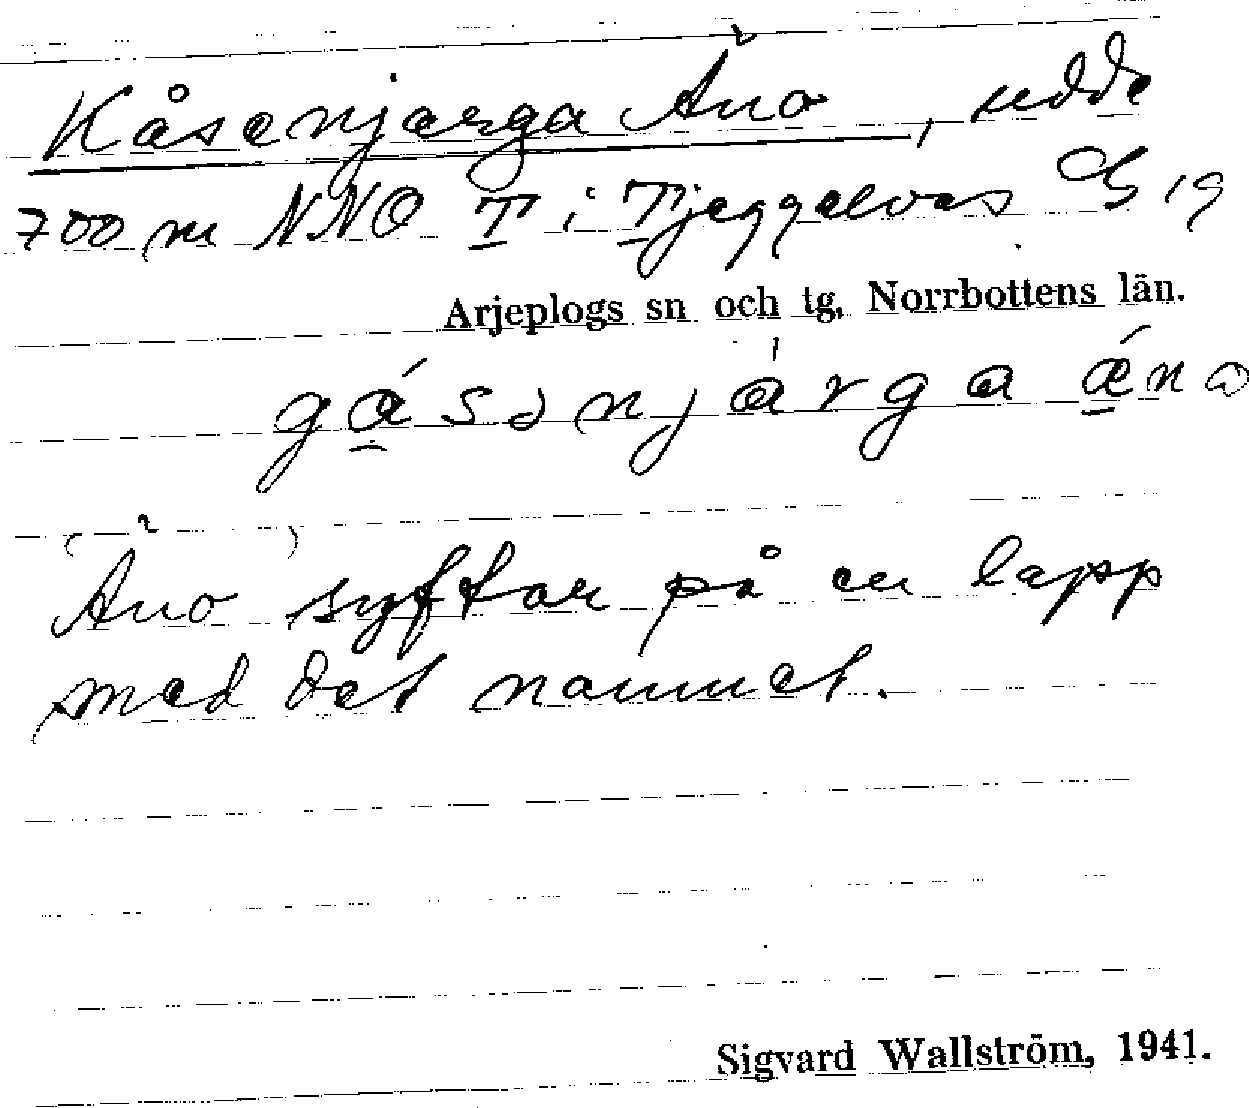 Kåsenjarga Äno, udde
700 m NNO T i Tjeggelvas G 19
Arjeplogs sn och tg, Norrbottens län.
gá̱sənjárga ǽ̱no
(Äno) syftar på en lapp
med det namnet.
Sigvard Wallström, 1941.